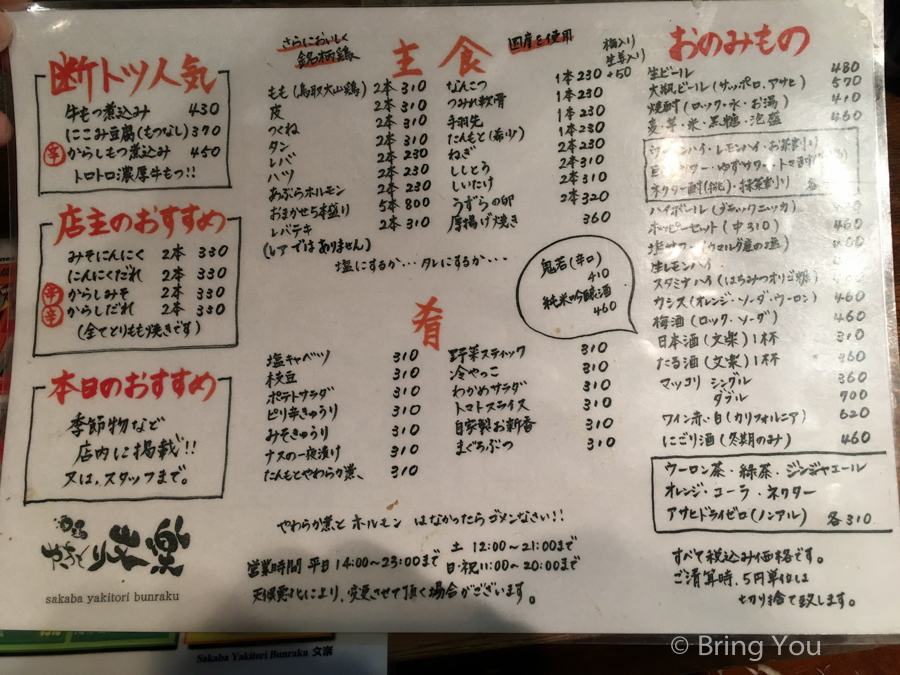 断トツ人気
牛もつ煮込み 430
にこみ豆腐(もつなし) 370
辛 からしもつ煮込み 450
トロトロ濃厚牛もつ!!
店主のおすすめ
みそにんにく 2本 330
にんにくだれ 2本 330
辛 からしみそ 2本 330
辛 からしだれ 2本 330
(全てとりもも焼きです)
本日のおすすめ
季節物など
店内に掲載!!
又は、スタッフまで。
sakaba yakitori bunraku
さらにおいしく
銘柄鶏
主食
国産を使用
もも(鳥取大山鶏) 2本 310
皮 2本 310
つくね 2本 310
タン 2本 310
レバ 2本 230
ハツ 2本 310
あぶらホルモン 2本 230
おまかせ5本盛り 5本 800
レバテキ 2本 310
(レアではありません)
梅入り
+50
なんこつ 1本 230
つみれ軟骨 1本 230
手羽先 1本 230
たんもと(希少) 1本 230
ねぎ 2本 230
ししとう 2本 310
しいたけ 2本 310
うずらの卵 2本 320
厚揚げ焼き 360
塩にするか・・・タレにするか・・・
鬼若(辛口)
410
純米吟醸酒
460
肴
塩キャベツ 310
枝豆 310
ポテトサラダ 310
ピリ辛きゅうり 310
みそきゅうり 310
ナスの一夜漬け 310
たんもとやわらか煮 310
野菜スティック 310
冷やっこ 310
わかめサラダ 310
トマトスライス 310
自家製お新香 310
まぐろぶつ 310
やわらか煮と ホルモン はなかったらゴメンなさい!!
営業時間 平日 14:00〜23:00まで
土 12:00〜21:00まで
日・祝 11:00〜20:00まで
天候悪化により、変更させて頂く場合がございます。
おのみもの
生ビール 480
大瓶ビール(サッポロ、アサヒ) 570
焼酎(ロック・水・お湯) 410
麦・芋・米・黒糖・泡盛 460
ハイ・レモンハイ・お茶割り
ゆずサワー・トマト
ネクター酎(桃)・抹茶割り 各
ハイボール(ブラックニッカ)
ホッピーセット(中310) 460
生レモンハイ
スタミナハイ(はちみつオリゴ糖) 460
カシス(オレンジ・ソーダ・ウーロン) 460
梅酒(ロック・ソーダ) 460
日本酒(文楽)1杯 310
たる酒(文楽)1杯 460
マッコリ シングル 360
ダブル 700
ワイン赤・白(カリフォルニア) 620
にごり酒(冬期のみ) 460
ウーロン茶・緑茶・ジンジャエール
オレンジ・コーラ・ネクター
アサヒドライゼロ(ノンアル) 各310
すべて税込み価格です。
ご清算時、5円単位は
切り捨て致します。
Sakaba Yakitori Bunraku 文楽
© Bring You